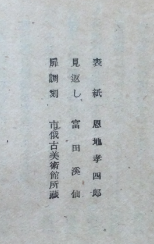 表紙 恩地孝四郎
見返し 富田溪仙
扉調刻 市俄古美術館所蔵